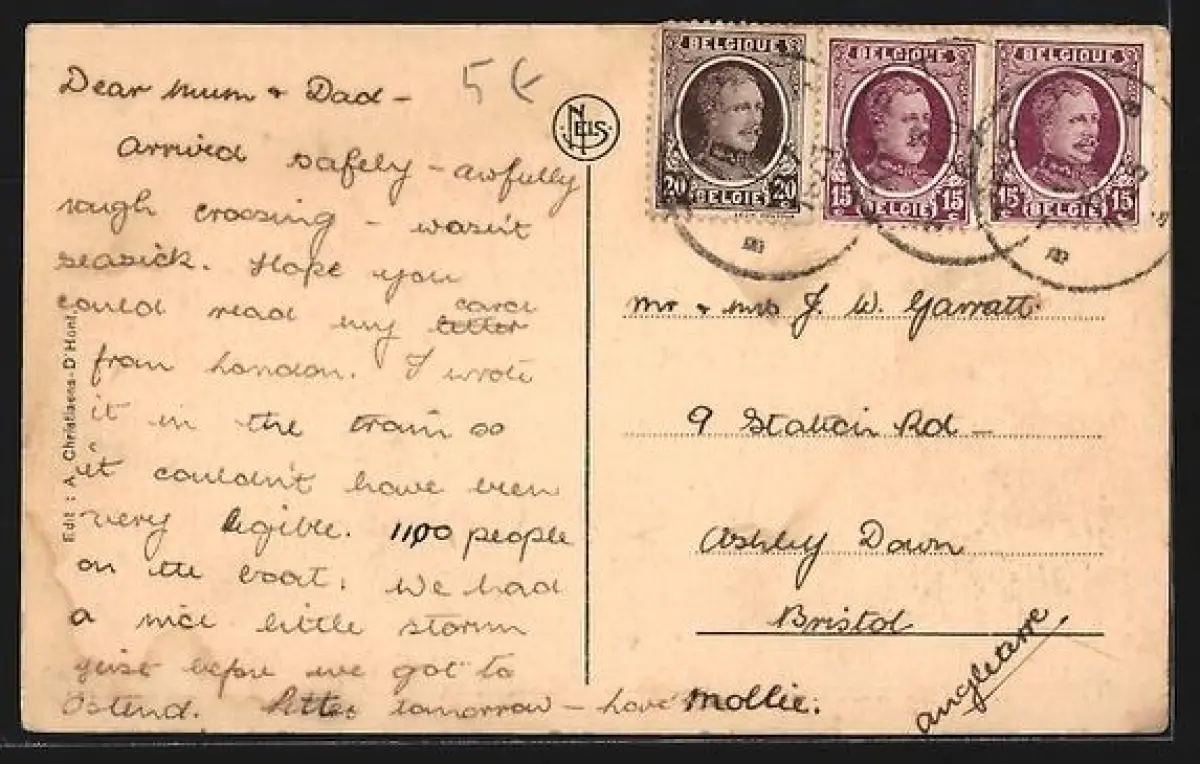 Dear Mum & Dad –
5 €
Arrived safely – awfully
rough crossing – wasn't
seasick. Hope you
could read my letter card
from London. I wrote
it in the train so
it couldn't have been
very legible. 1100 people
on the boat. We had
a nice little storm
just before we got to
Ostend. Letter tomorrow – love Mollie.
Edit : A. Christiaens-D'Hont
NELS
BELGIQUE
20 20
BELGIE
BELGIQUE
15 15
BELGIE
BELGIQUE
15 15
BELGIE
Mr & Mrs J. W. Garratt
9 Station Rd –
Ashley Down
Bristol
Angleterre